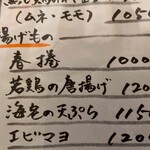 (ムネ・モモ) 1050
揚げもの
春捲 1000
若鶏の唐揚げ 120
海老の天ぷら 115
エビマヨ 1200